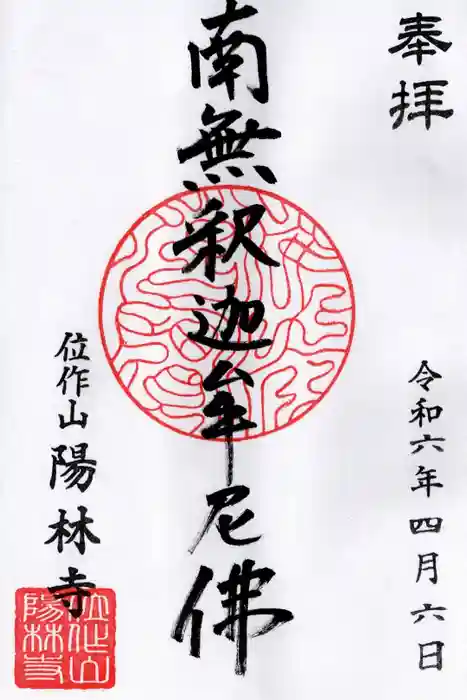 奉拝
令和六年四月六日
南無釈迦牟尼佛
位作山陽林寺
位作山
陽林寺